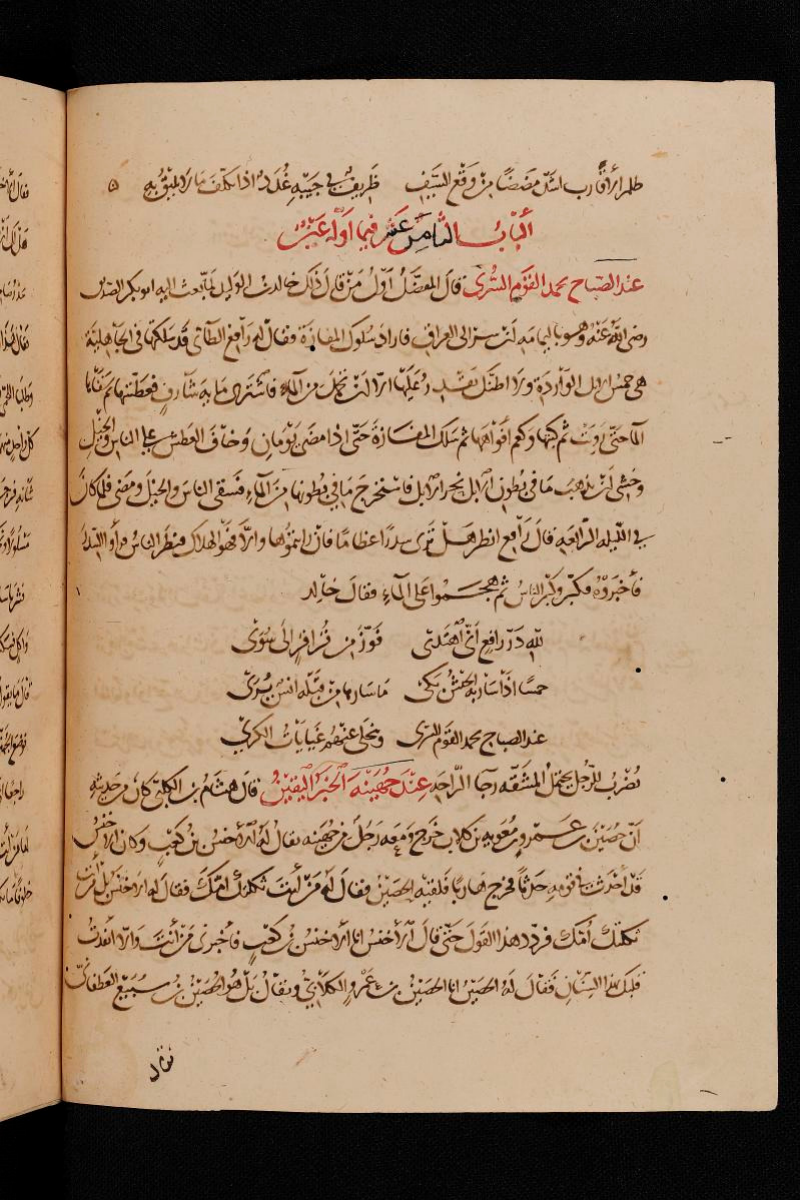 ظلم الأقارب اشد مضضا من وقع السيف ظريف في جيبه غدد اذا تكلف ما لا يليق به ه
الباب الثامن عشر فيما اوله عين
عند الصباح يحمد القوم السرى قال المفضل اول من قال ذلك خالد بن الوليد لما بعث اليه ابو بكر الصديق
رضى الله عنه وهو باليمامه ان سر الى العراق فاراد سلوك المفازة فقال له رافع الطائى قد سلكتها فى الجاهلية
هى خمس للابل الواردة ولا اظنك تقدر عليها الا ان تحمل من الماء فاشترى مايه شارف فعطشها ثم سقاها
الماء حتى رويت ثم كتبها وكعم افواهها ثم سلك المفازة حتى اذا مضى يومان وخاف العطش على الناس والخيل
وخشى ان يذهب ما فى بطون الابل نحر الابل فاستخرج ما فى بطونها من الماء فسقى الناس والخيل ومضى فلما كان
فى الليله الرابعه قال رافع انظر هل ترى سدرا عظاما فان رايتموها والا فهو الهلاك فنظر الناس فراوا السدر
فأخبروه فكبر وكبر الناس ثم هجموا على الماء فقال خالد
لله در رافع انى اهتدى فوز من قراقر الى سوى
خمسا اذا سار به الجيش بكى ما سارها من قبله انس يرى
عند الصباح يحمد القوم السرى وتنجلى عنهم غيابات الكرى
يضرب للرجل يحتمل المشقه رجا الراحه عند جهينه الخبر اليقين قال هشام بن الكلبى كان من حديثه
ان حصين بن عمرو بن معويه بن كلاب خرج ومعه رجل من جهينه يقال له الأخنس بن كعب وكان الاخنس
قد احدث فى قومه حدثا فخرج هاربا فلقيه الحصين فقال له من أنت ثكلتك امك فقال له الاخنس بل انت
ثكلتك أمك فردد هذا القول حتى قال الأخنس انا الاخنس بن كعب فأخبرنى من أنت والا انفذت
قلبك بهذا السنان فقال له الحصين انا الحصين بن عمرو الكلابى ويقال بل هو الحصين بن سبيع الغطفانى
فقال